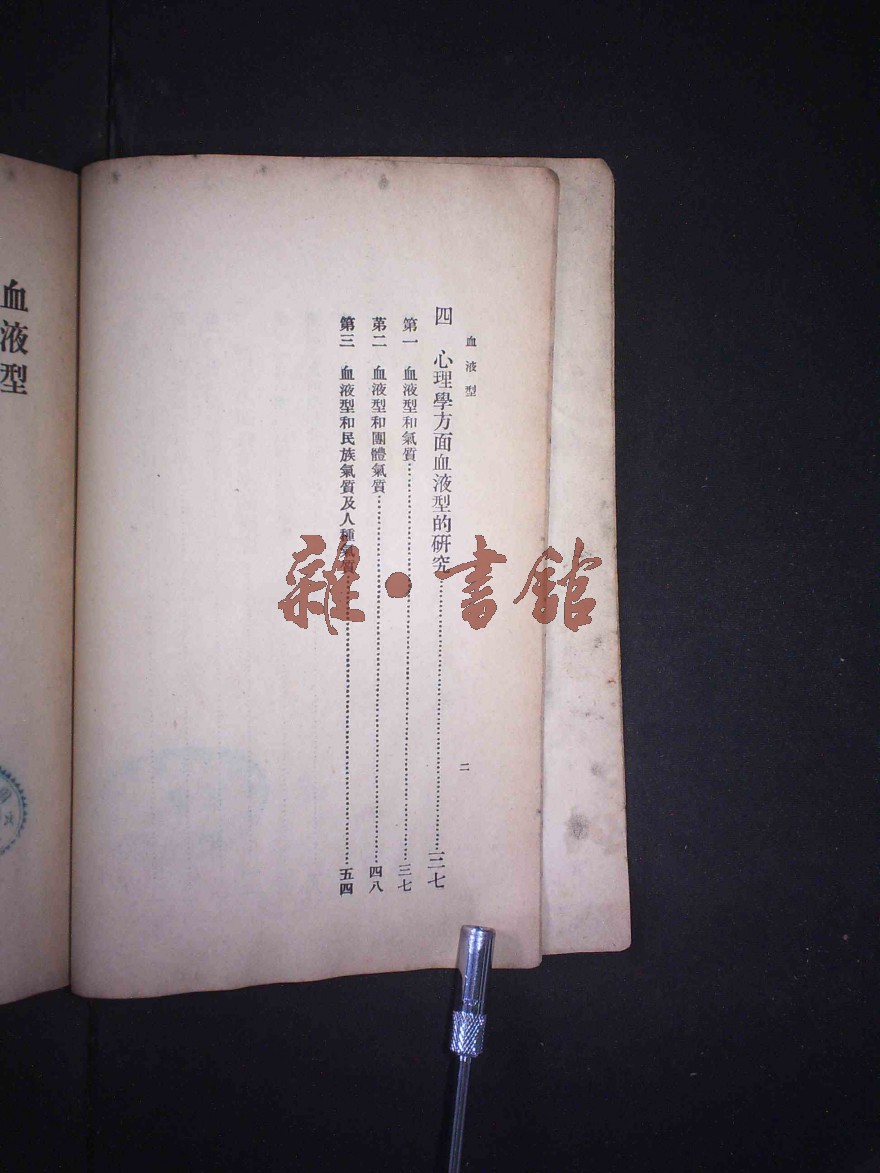 血液型
二
四 心理學方面血液型的研究……三七
第一 血液型和氣質……三七
第二 血液型和團體氣質……四八
第三 血液型和民族氣質及人種氣質……五四
血液型
雜·書館